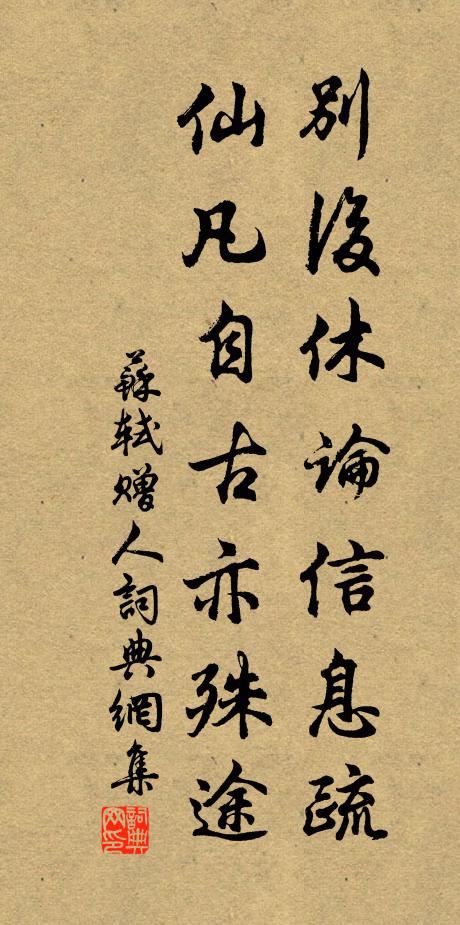 別後休論信息疏
仙凡自古亦殊途
蘇軾贈人詞典網集
詞典網印